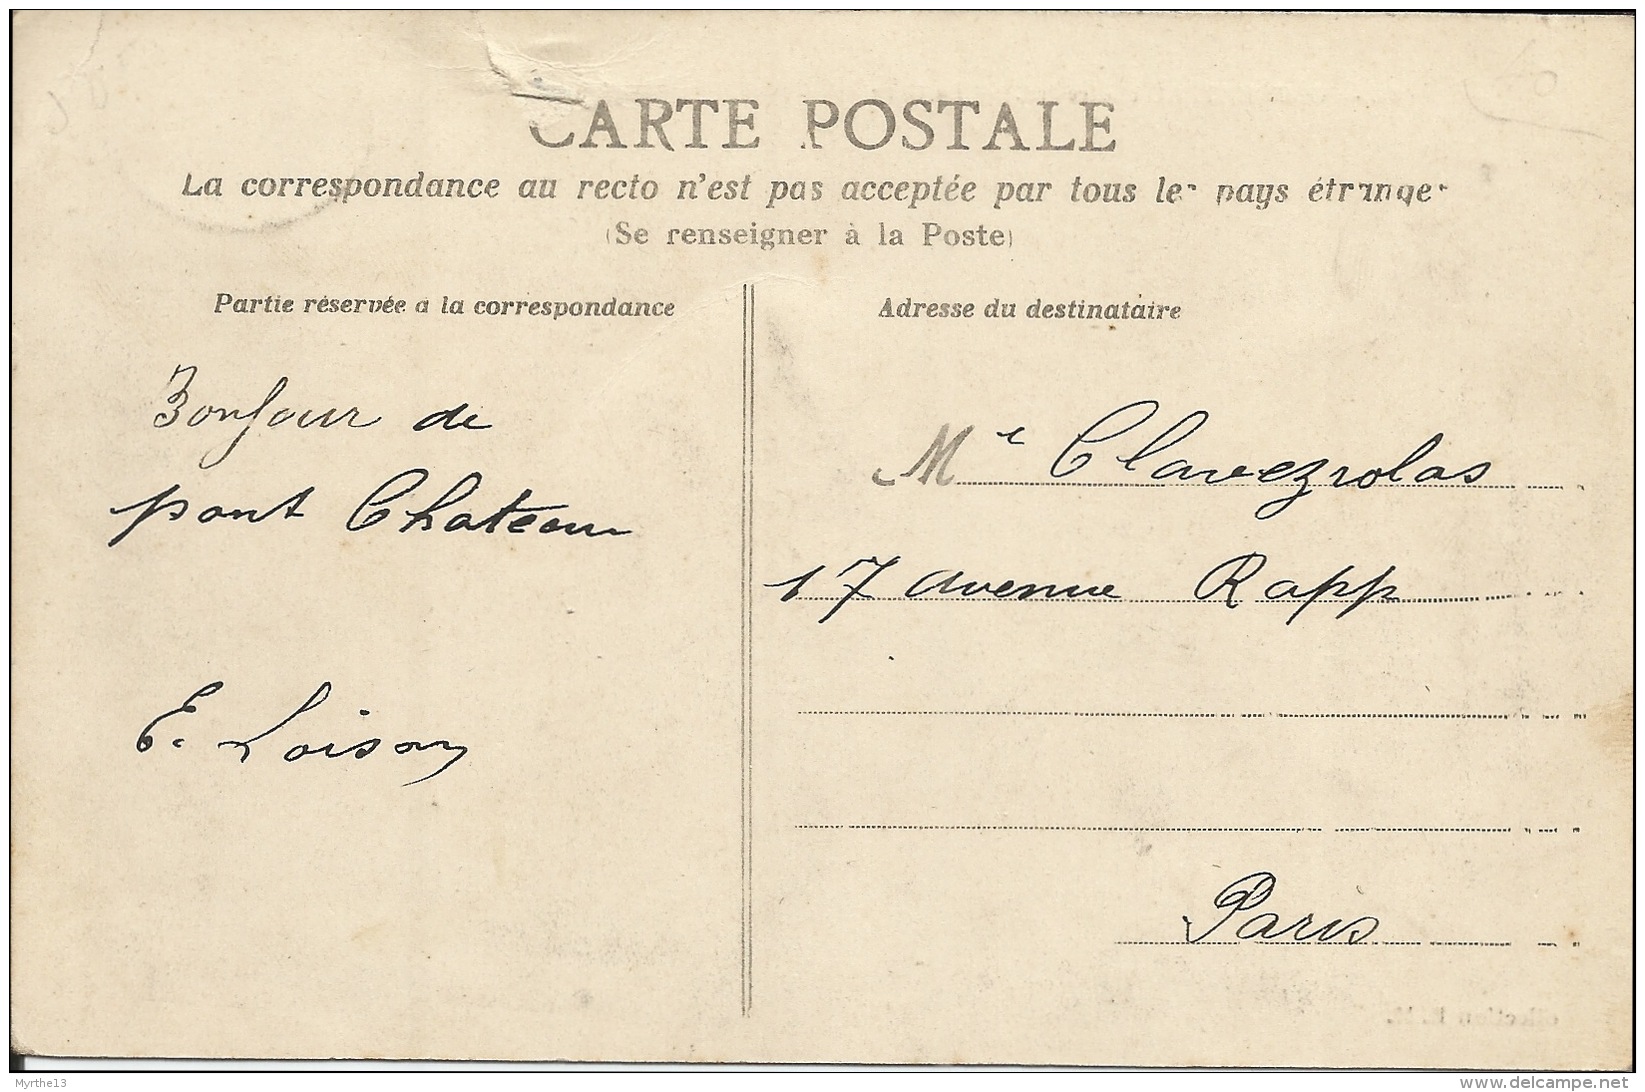 CARTE POSTALE
La correspondance au recto n'est pas acceptée par tous les pays étranger
(Se renseigner à la Poste)
Partie réservée à la correspondance
Bonjour de
pont Chateau
E. Loison
Adresse du destinataire
Me Clavezolas
17 avenue Rapp
Paris
Myrthe13
delcampe.net